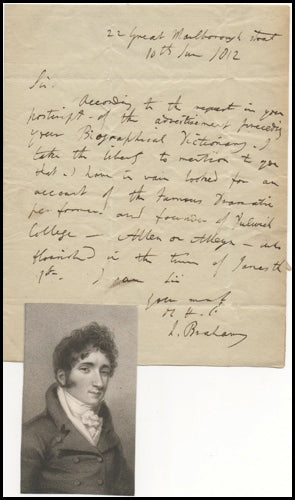 22 Great Marlborough Street
10th Jan 1812
Sir.
According to the request in your
postcript of the advertisement preceding
your Biographical Dictionary, I
take the liberty to mention to you
that I have in vain looked for an
account of the famous Dramatic
performer and founder of Dulwich
College — Allen or Alleyn — who
flourished in the time of James th
1st — I am Sir
your most
H S
J. Braham